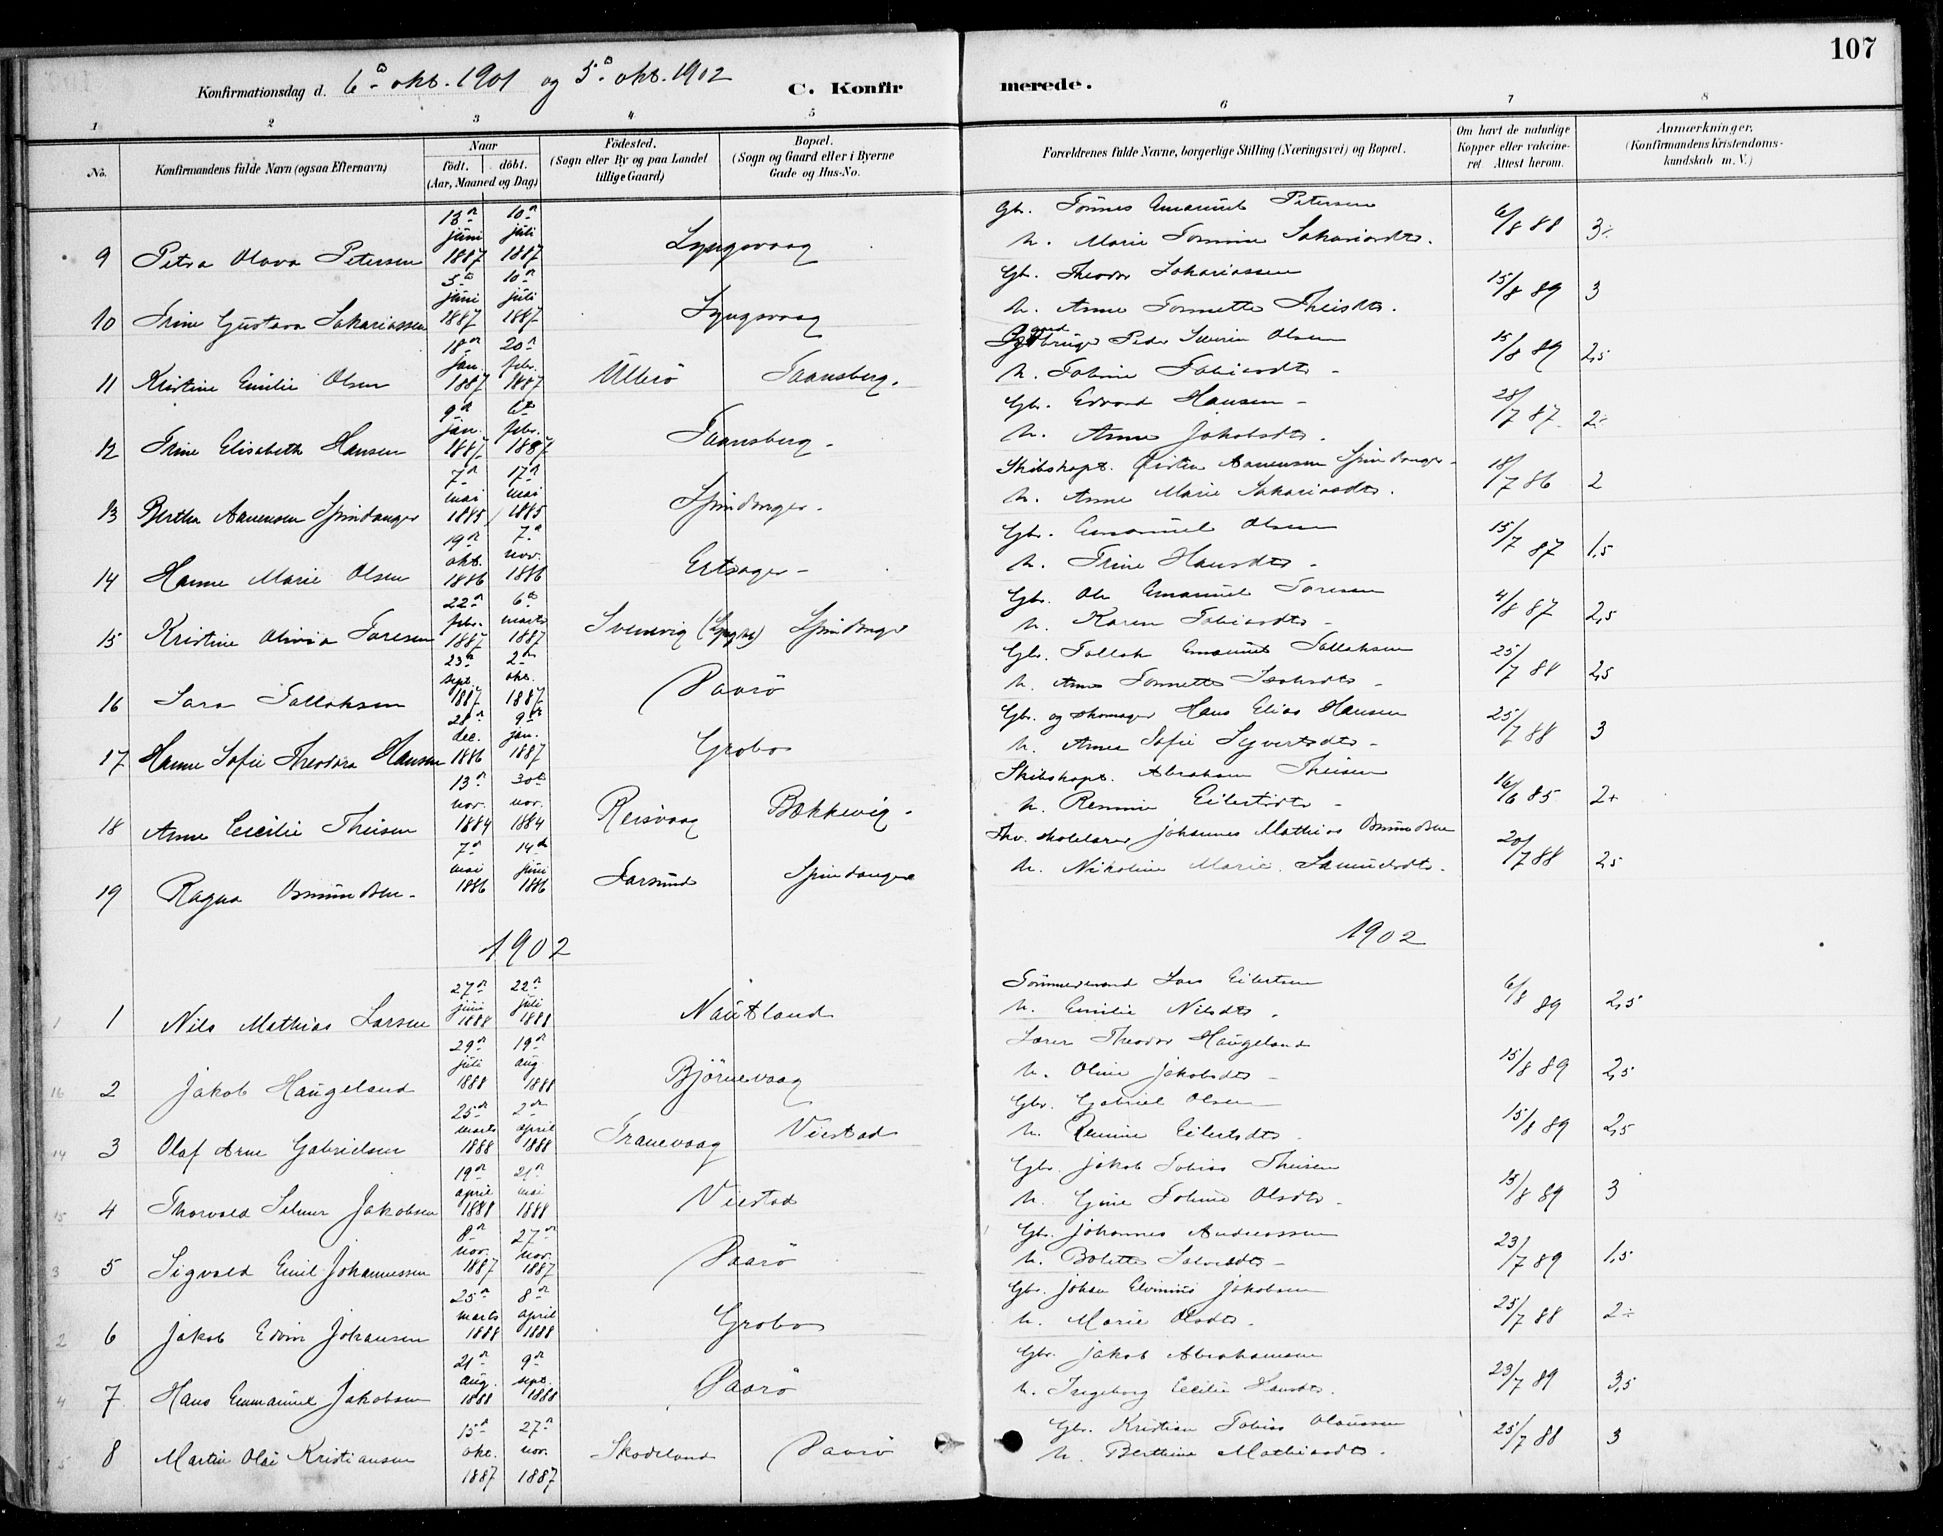 107
Konfirmationsdag d. 6te okt. 1901 og 5te okt. 1902 C. Konfirmerede.
1 2 3 4 5 6 7 8
No. Konfirmandens fulde Navn (ogsaa Efternavn) Naar födt. döbt. (Aar, Maaned og Dag) Födested. (Sogn eller By og paa Landet tillige Gaard) Bopæl. (Sogn og Gaard eller i Byerne Gade og Hus-No. Forældrenes fulde Navne, borgerlige Stilling (Næringsvei) og Bopæl. Om havt de naturlige Kopper eller vakcineret Attest herom. Anmærkninger. (Konfirmandens Kristendomskundskab m. V.)
9 Petra Olava Petersen 13de juni 1887 10de juli 1887 Lyngsvaag Gb. Tönnes Emanuel Petersen 6/8 88 3÷
h. Marie Tomine Sakariasdtr.
10 Trine Gustava Sakariassen 5te juni 1887 10de juli 1887 Lyngsvaag Gb. Theodor Sakariassen 15/8 89 3
h. Anne Tonnette Theisdtr.
11 Kristine Emilie Olsen 18de jan. 1887 20de febr. 1887 Ullerö Taansberg. Gaardbruger Peder Severin Olsen 15/8 89 2,5
h. Tobine Tobiasdtr.
12 Trine Elisabeth Hansen 9de jan. 1887 6te febr. 1887 Taansberg. Gb. Edvard Hansen 28/7 87. 2÷
h. Anne Jakobsdtr.
13 Bertha Aanensen Spindanger 7de mai 1885 17de mai 1885 Spindanger. Skibskapt. Aanensen Spindanger 18/7 86 2
h. Anne Marie Sakariasdtr.
14 Hanne Marie Olsen 19de okt. 1886 7de nov. 1886 Ertsager Gb. Emanuel Olsen 15/7 87 1,5
h. Trine Hansdtr.
15 Kristine Olivia Toresen 22de febr. 1887 6te marts 1887 Svennevig (Lyngdal) Spindanger Gb. Ole Emanuel Toresen 4/8 87 2,5
h. Karen Tobiasdtr.
16 Sara Tollaksen 23de sept. 1887 2den okt. 1887 Paarö Gb. Tollak Emanuel Tollaksen 25/7 88 2,5
h. Anne Tonnette Isaksdtr.
17 Hanne Sofie Theodora Hansen 28de dec. 1886 9de jan. 1887 Grobos Gb. og skomager Hans Elias Hansen 25/7 88 3
h. Anne Sofie Syvertsdtr.
18 Anne Cecilie Theisen 13de nov. 1884 30te nov. 1884 Reisvaag Bækkevig. Skibskapt. Abraham Theisen 16/6 85 2+
h. Remine Eilertsdtr.
19 Ragna Osmundsen. 7de mai 1886 14de juni 1886 Farsund Spindanger Fhv. skolelærer Johannes Mathias Osmundsen 20/7 88 2,5
h. Nikoline Marie Samuelsdtr.
1902 1902
1 1 Nils Mathias Larsen 27de juni 1888 22de juli 1888 Nautland Tömmermand Lars Eilertsen 6/8 89 2,5
h. Emilie Nilsdtr.
16 2 Jakob Haugeland 29de juli 1888 19de aug. 1888 Björnevaag Lærer Theodor Haugeland 15/8 89 2,5
h. Oline Jakobsdtr.
14 3 Olaf Arne Gabrielsen 25de marts 1888 2den april 1888 Tranevaag Vierstad Gb. Gabriel Olsen 15/8 89 2,5
h. Remine Eilertsdtr.
15 4 Thorvald Selmer Jakobsen 19de april 1888 21de mai 1888 Vierstad Gb. Jakob Tobias Theisen 15/8 89 3
h. Gine Tobine Olsdtr.
3 5 Sigvald Emil Johannessen 8de nov. 1887 27de nov. 1887 Paarö Gb. Johannes Andreassen 23/7 89 1,5
h. Bolette Salvesdtr.
2 6 Jakob Edvin Johansen 25de marts 1888 8de april 1888 Grobos Gb. Johan Elvinius Jakobsen 25/7 88 2÷
h. Marie Olsdtr.
4 7 Hans Emmanuel Jakobsen 21de aug. 1888 9de sept. 1888 Paarö Gb. Jakob Abrahamsen 23/7 89 3,5
h. Ingeborg Cecilie Hansdtr.
5 8 Martin Olai Kristiansen 15de okt. 1887 27de nov. 1887 Skodeland Paarö Gb. Kristian Tobias Olaussen 25/7 88 3
h. Berthine Mathiasdtr.